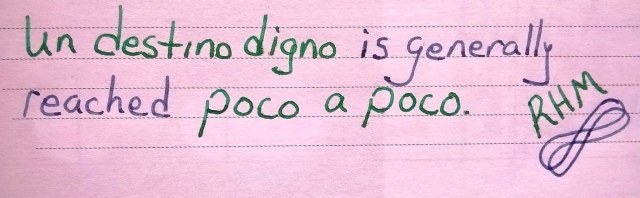 Un destino digno is generally
reached poco a poco.
RHM